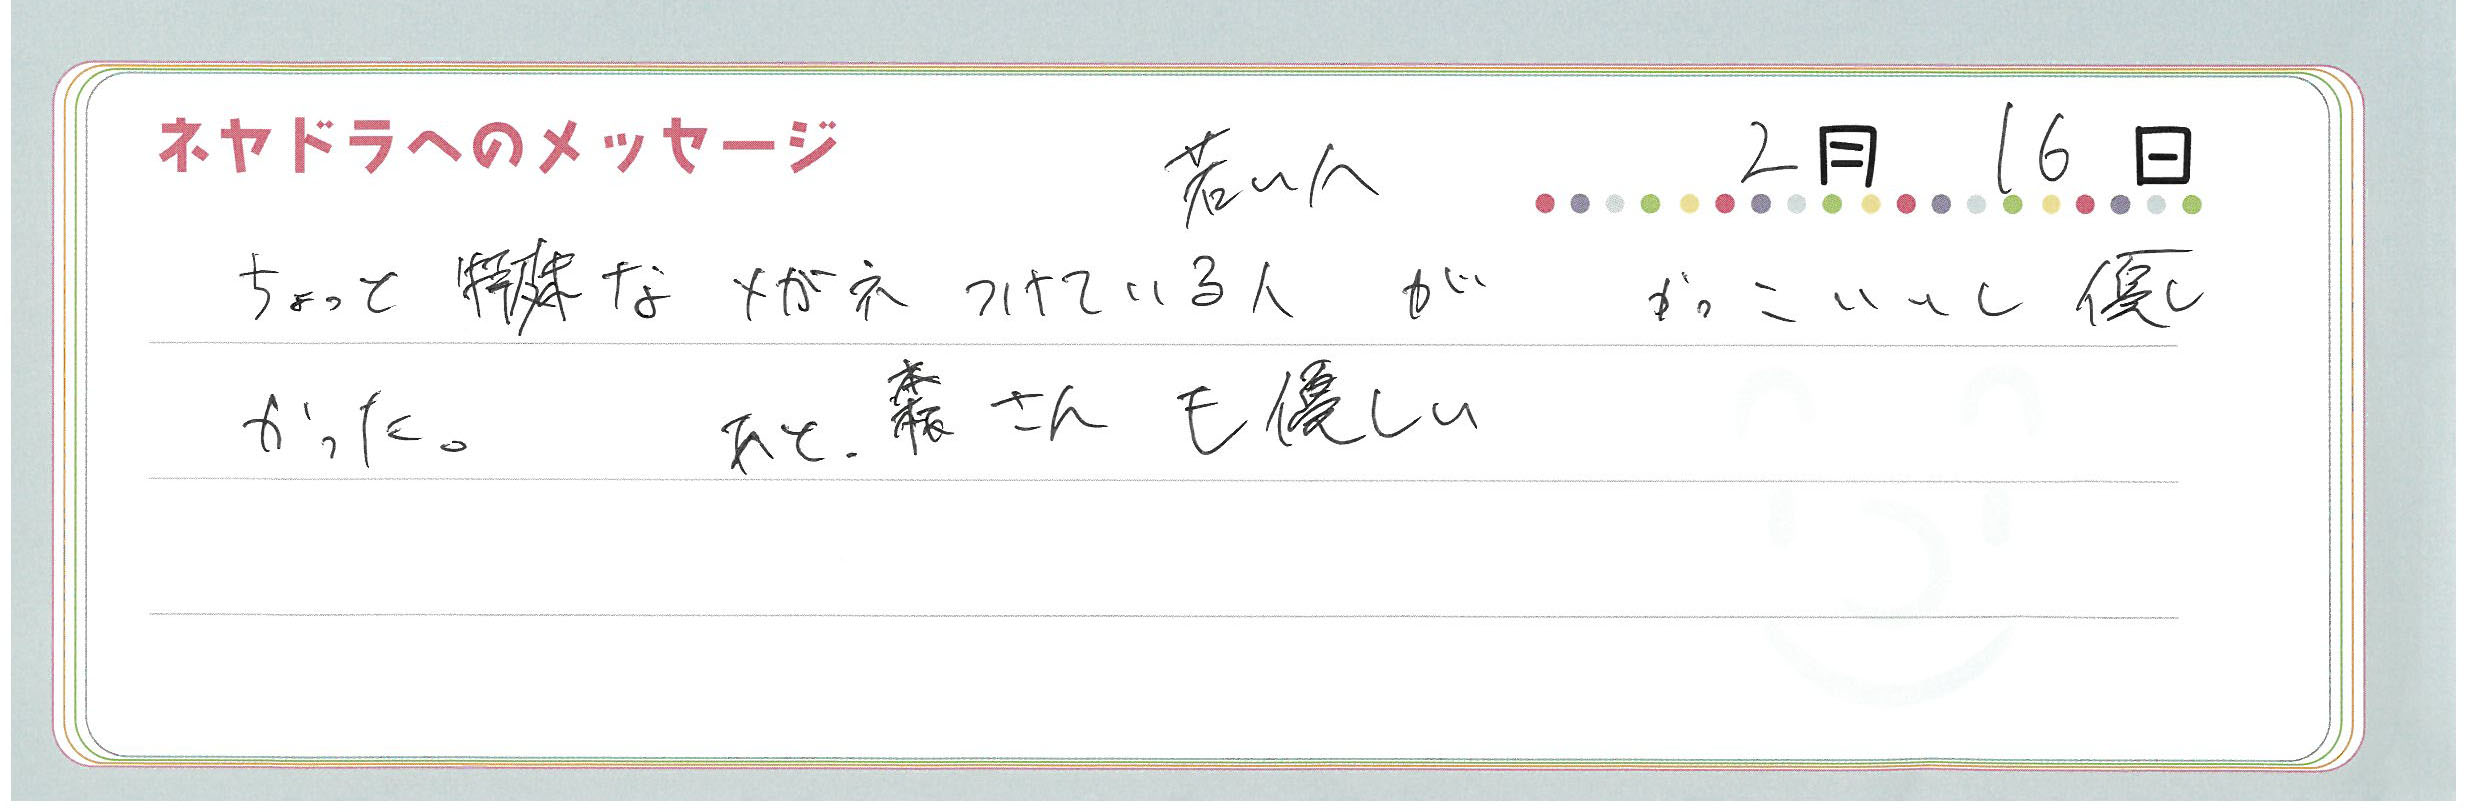 ネヤドラへのメッセージ
2月 16日
若い人
ちょっと特殊なメガネつけている人が かっこいいし優し
かった。 あと、森さんも優しい